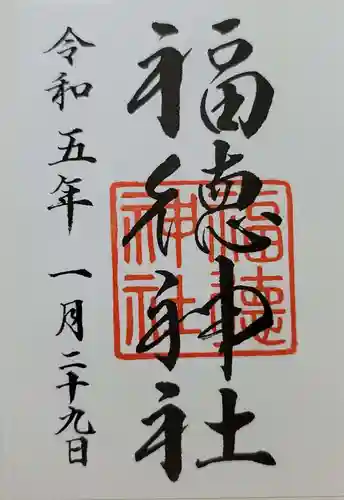 福徳神社
福徳
神社
令和五年一月二十九日